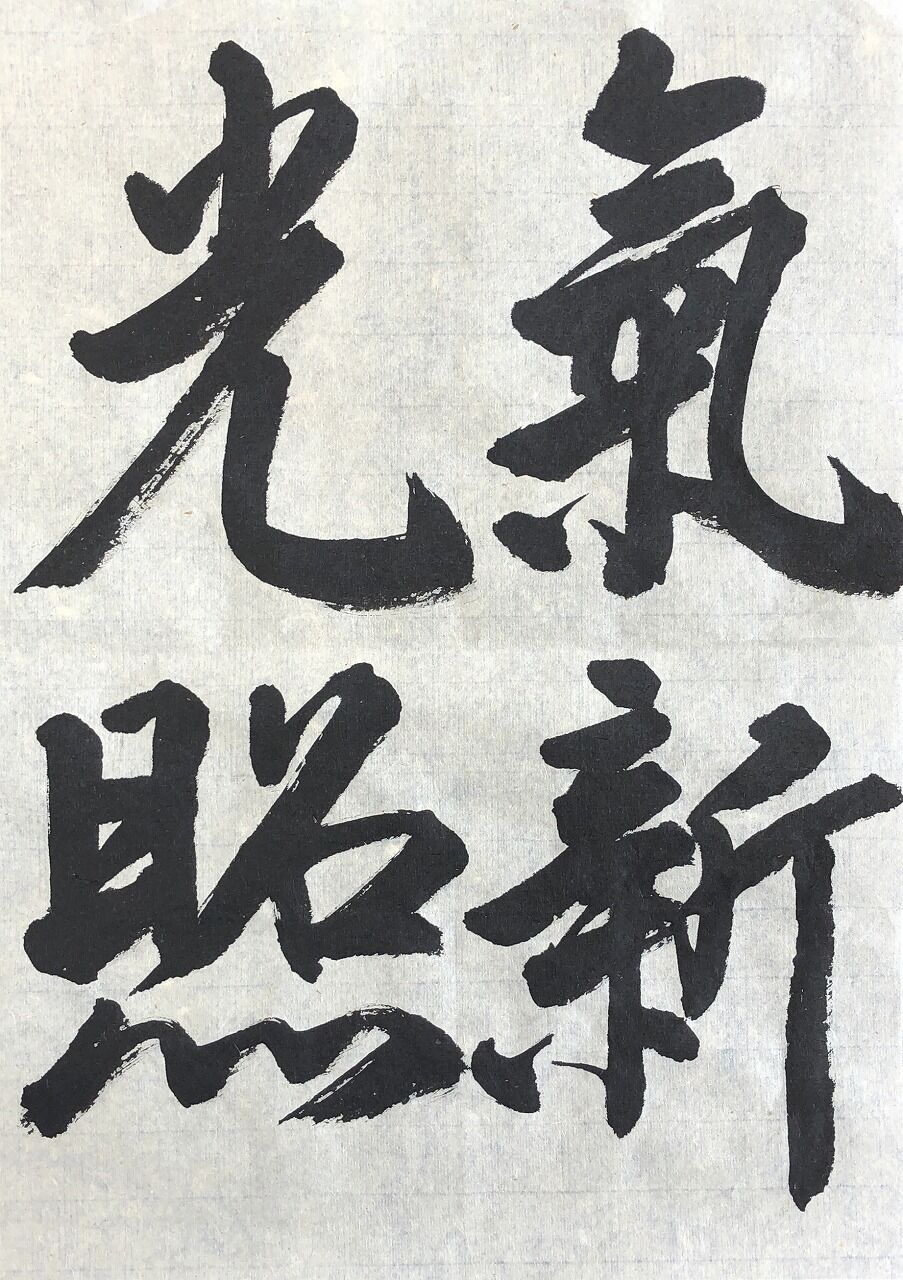 氣新
光照